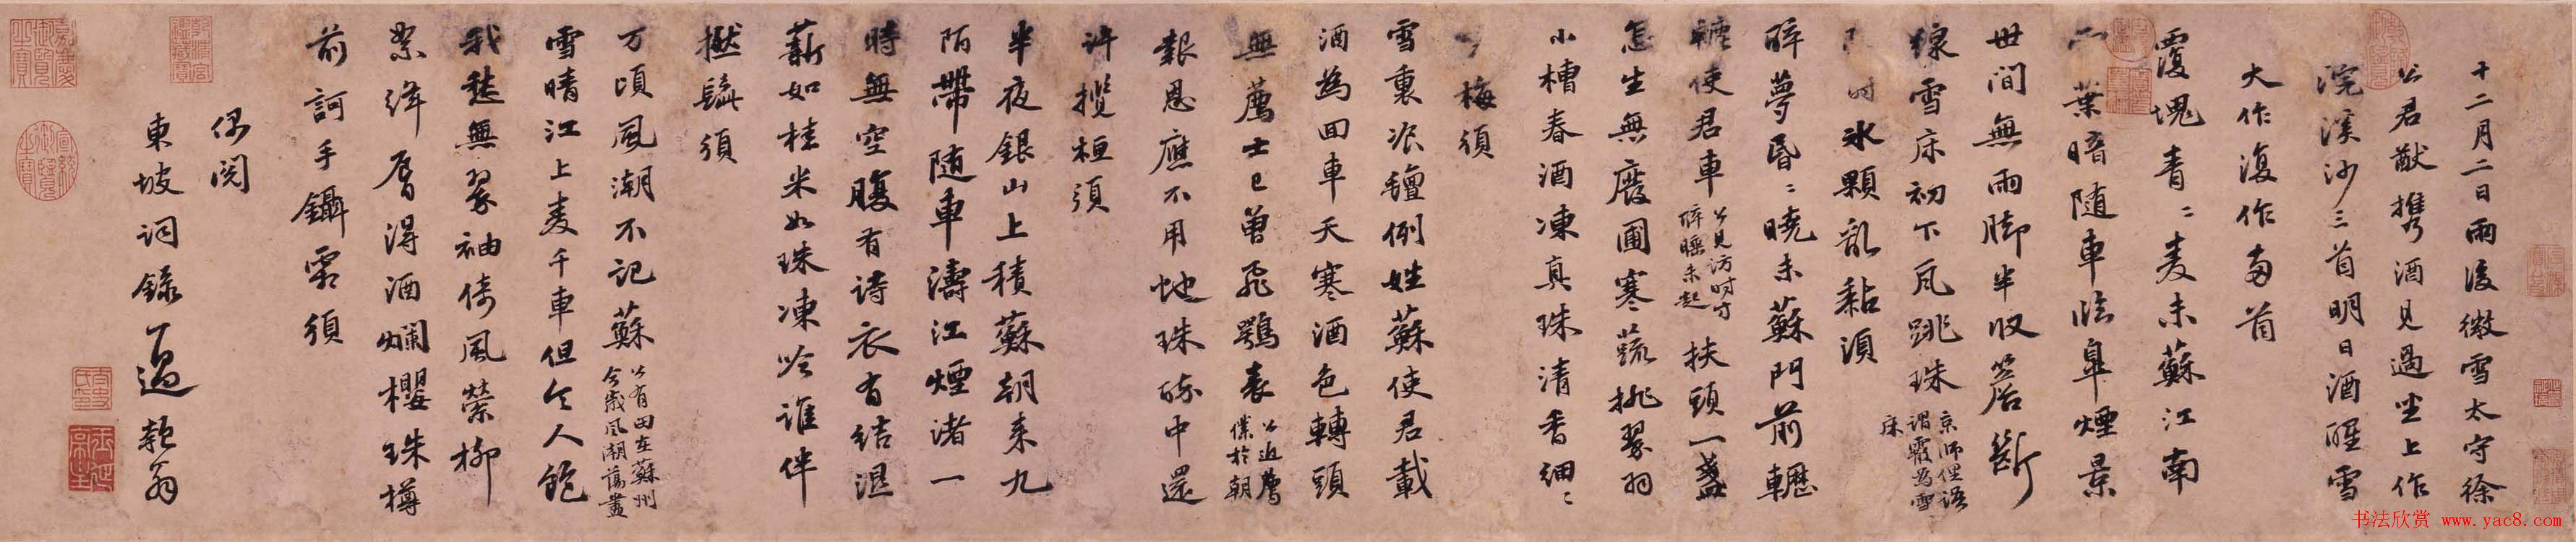 十二月二日雨後微雪太守徐
公君猷攜酒見過坐上作
浣溪沙三首明日酒醒雪
大作復作兩首
覆塊青〻麥未蘇江南
葉暗隨車臨皋煙景
世間無雨脚半收簷斷
線雪床初下瓦跳珠
京師俚語
謂霰為雪
床
時冰顆亂黏須
醉夢昏〻曉未蘇門前轣
轆使君車
公見訪時方
醉睡未起
扶頭一盞
怎生無廢圃寒蔬挑翠羽
小槽春酒凍真珠清香細〻
梅須
雪裏飡氊例姓蘇使君載
酒為回車天寒酒色轉頭
無薦士已曾飛鶚表
公近薦
僕於朝
報恩應不用虵珠醉中還
許攬桓須
半夜銀山上積蘇朝来九
陌帶隨車濤江煙渚一
時無空腹有詩衣有結濕
薪如桂米如珠凍吟誰伴
撚髭須
万頃風潮不記蘇
公有田在蘇州
今歲風潮蕩盡
雪晴江上麦千車但令人飽
我愁無翠袖倚風縈柳
絮絳唇得酒爛櫻珠樽
前訶手鑷霜須
偶閱
東坡詞錄過
翁
书法欣赏 www.yac8.com